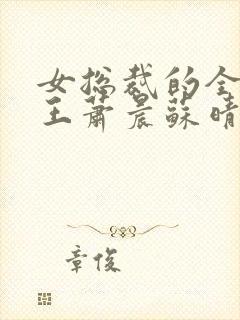 女总裁的全
王萧晨苏晴
章俊